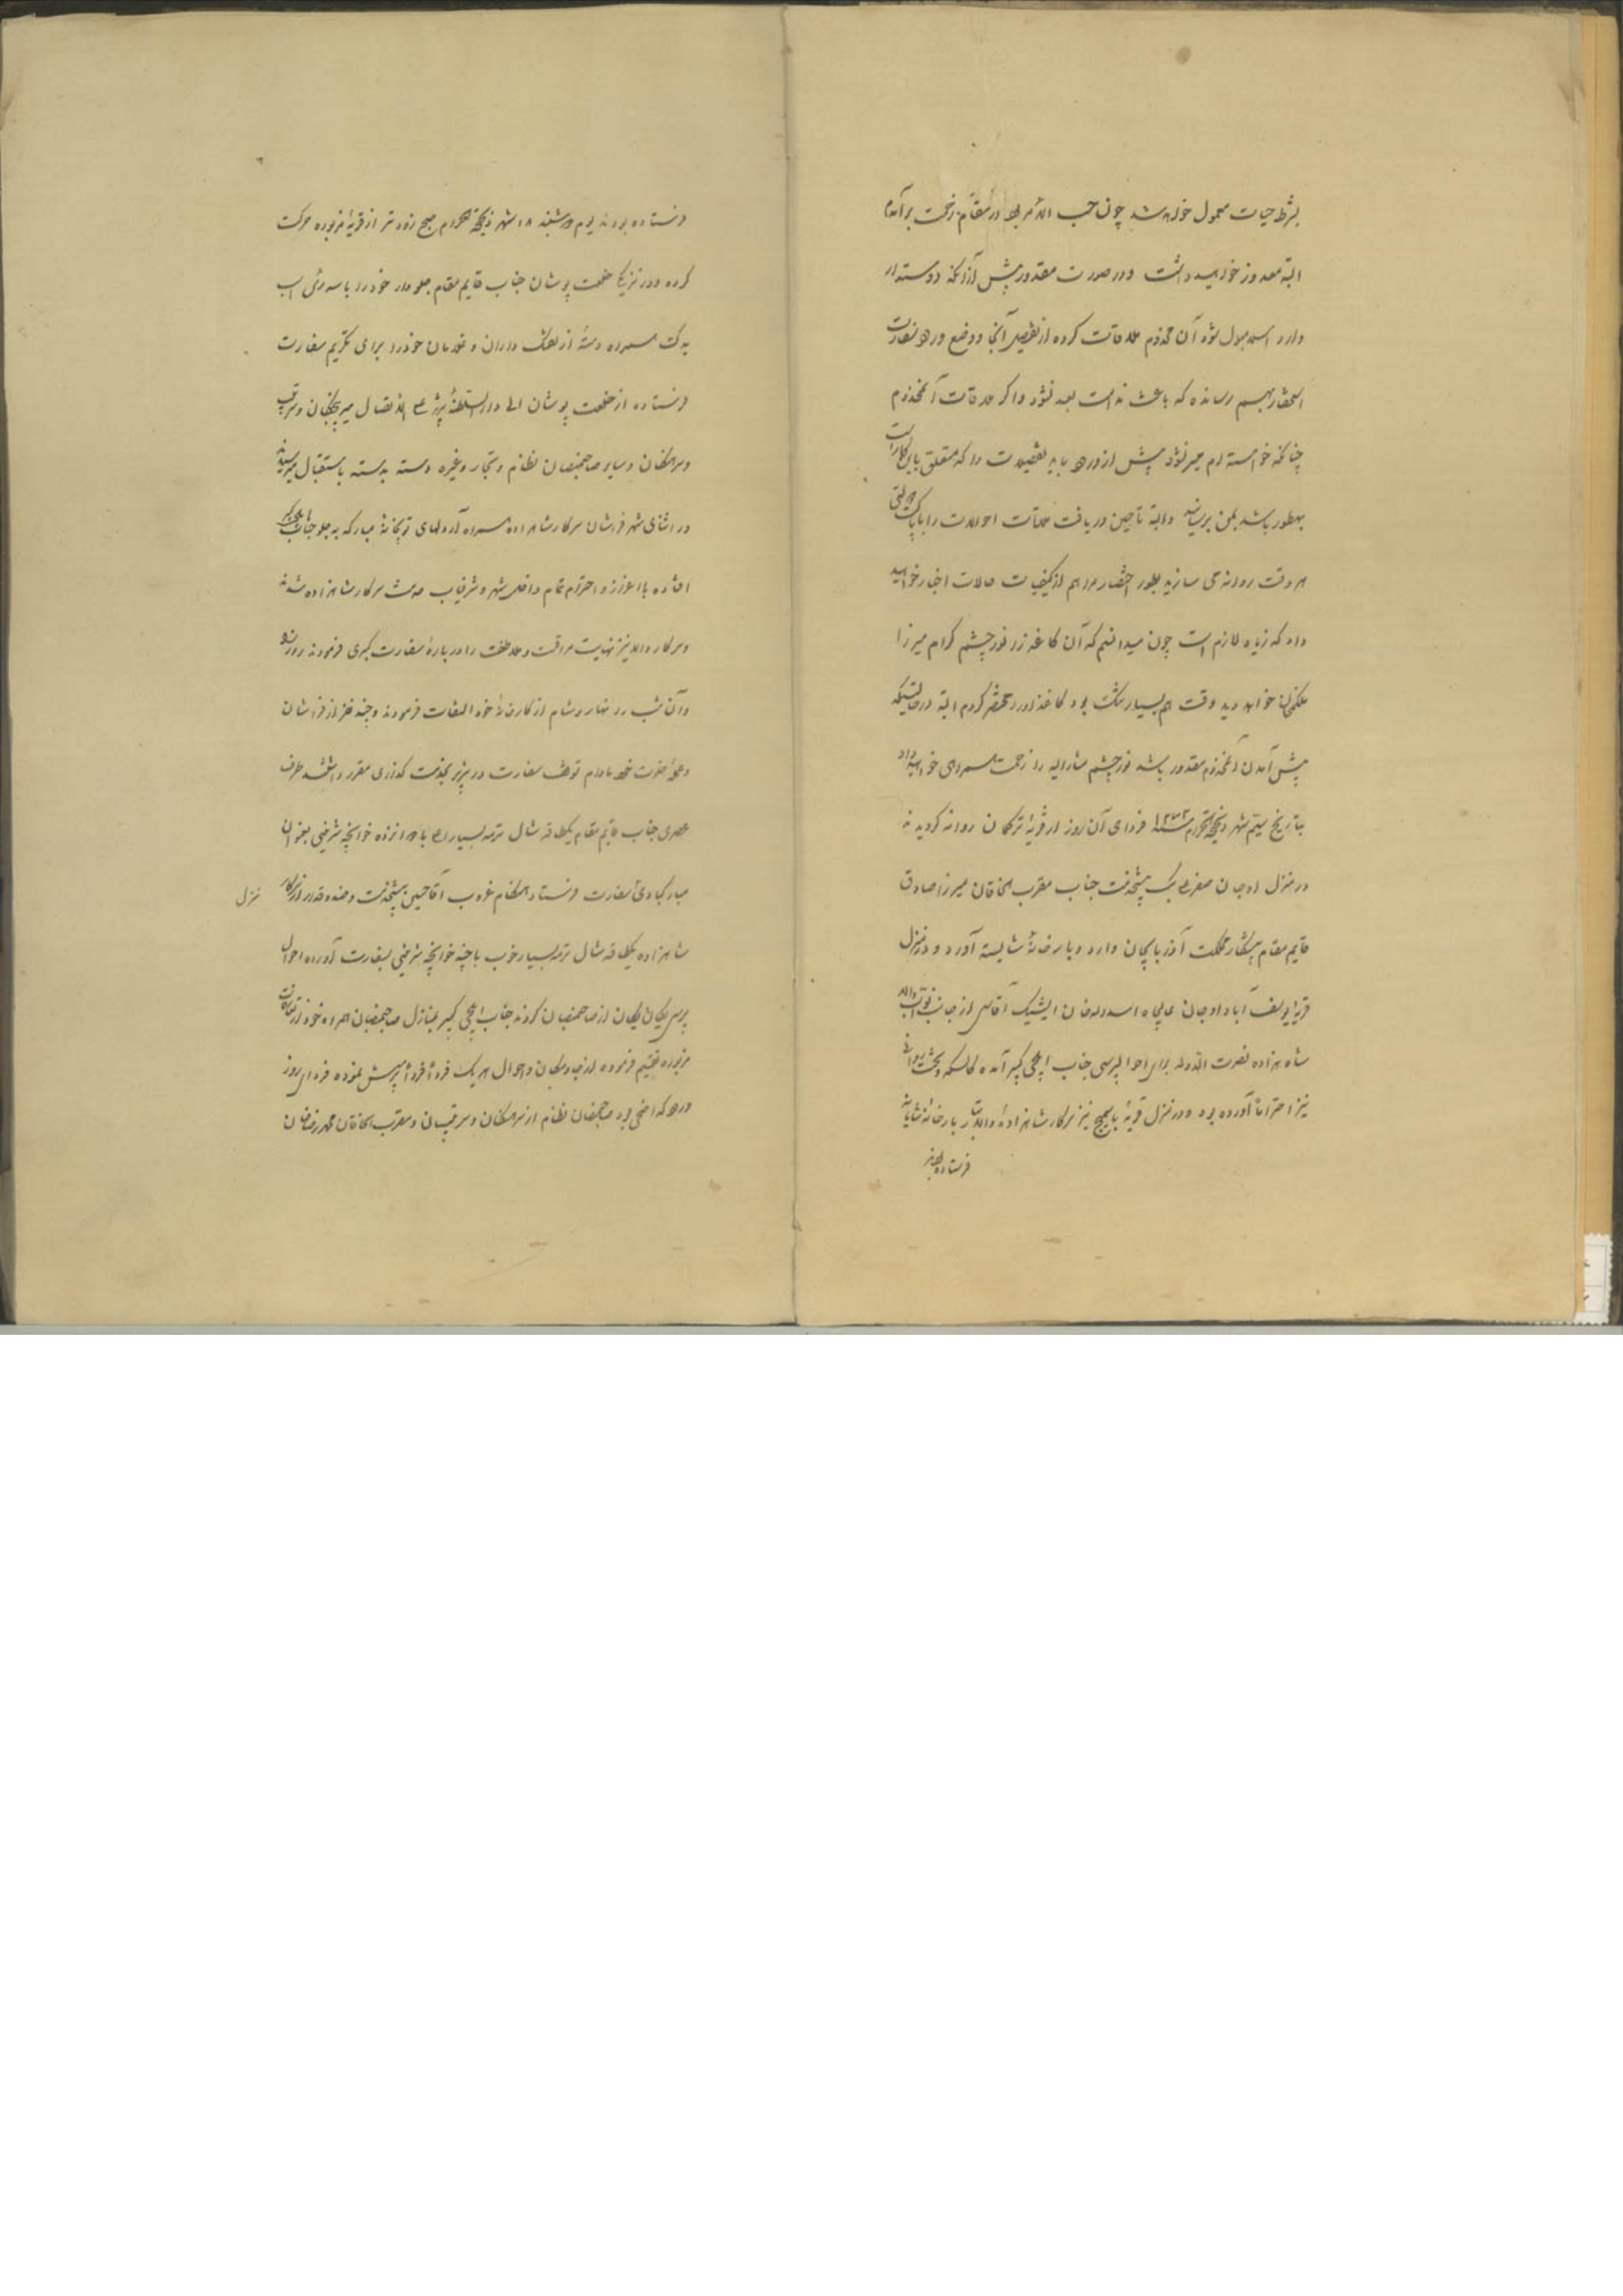 بشرط حیات معمول خواهد شد چون حسب الامر بود در مقام زحمت برآمدم
البته معذور خواهید داشت و در صورت مقدور پیش از آنکه دوستدار
وارد اسلامبول شود آن مخدوم ملاقات کرده از تفصیل آنجا و وضع ورود سفارت
استحضار بهم رسانده که باعث ندامت بعد نشود و اگر ملاقات آنمخدوم
چنانکه خواسته‌ام میسر نشود پیش از ورود باید تفصیلات را که متعلق باین کار است
بهر طور باشد بمن برسانید و البته تا حین دریافت ملاقات احوالات را با
هر وقت روانه می سازید بطور اختصار مرا هم از کیفیت حالات اخبار خواهید
داد که زیاده لازم است چون میدانم که آن کاغذ را نور چشم کرام میرزا
ملکم خان خواهد دید وقت هم بسیار تنگ بود کاغذ او را مختصر کردم البته در حالتیکه
پیش آمدن آنمخدوم مقدور باشد نور چشم مشارالیه را زحمت همراهی خواهید داد
بتاریخ بیستم شهر ذیحجة الحرام سنه ۱۲۷۲ فردای آن روز از قریه ترکمان روانه گردیدند
در منزل اوجان صفر علی بیک پیشخدمت جناب مقرب الخاقان میرزا صادق
قایم مقام پیشکار مملکت آذربایجان وارد و بارخانهٔ شایسته آورد و در منزل
قریهٔ یوسف آباد اوجان عالیجاه اسدالله خان ایشیک آقاسی از جانب نواب والا
شاهزاده نصرت الدوله برای احوالپرسی جناب ایلچی کبیر آمده کالسکه و تخت روانی
نیز احتراماً آورده بود و در منزل قریهٔ باسمنج نیز سرکار شاهزادهٔ والاتبار بارخانهٔ شایانه
فرستاده بودند
فرستاده بودند یوم دوشنبه ۱۸ شهر ذیحجة الحرام صبح زودتر از قریهٔ مزبوره حرکت
کرده و در نزدیک خلعت پوشان جناب قایم مقام جلودار خود را با سه رأس اسب
یدک همراه دستهٔ از تفنگ داران و غلامان خود را برای تکریم سفارت
فرستاده از خلعت پوشان الی دارالسلطنهٔ تبریز علی الاتصال میرپنجگان و سرتیپ
و سرهنگان و سایر صاحبمنصبان نظام و تجار و غیره دسته بدسته باستقبال میرسیدند
در اثنای شهر فراشان سرکار شاهزاده همراه اردلهای توپخانهٔ مبارکه به جلو جناب ایلچی کبیر
افتاده با اعزاز و احترام تمام داخل شهر و شرفیاب خدمت سرکار شاهزاده شدند
و سرکار والا نیز نهایت مرافقت و ملاطفت را در بارهٔ سفارت کبری فرمودند روز ورود
و آن شب را نهار و شام از کارخانهٔ خود التفات فرمودند و چند نفر از فراشان
و عملهٔ خلوت خود مادام توقف سفارت در تبریز بخدمت گذاری مقرر داشتند طرف
عصری جناب قایم مقام یکطاقه شال ترمه بسیار اعلا با دوازده خوانچه شیرینی بعنوان
مبارکبادی سفارت فرستاد هنگام غروب آقا حسین پیشخدمت و صندوقدار از سرکار
شاهزاده یکطاقه شال ترمه بسیار خوب با چند خوانچه شیرینی بسفارت آورده احوال
پرسی یکان یکان از صاحبمنصبان کردند جناب ایلچی کبیر بمنازل صاحبمنصبان همراه خود از تعارفات
مزبوره تقسیم فرموده از جا و مکان و احوال هر یک فرداً فرداً پرسش نموده فردای روز
ورود که اضحی بود صاحبمنصبان نظام از سرهنگان و سرتیپان و مقرب الخاقان محمد رضا خان
منزل